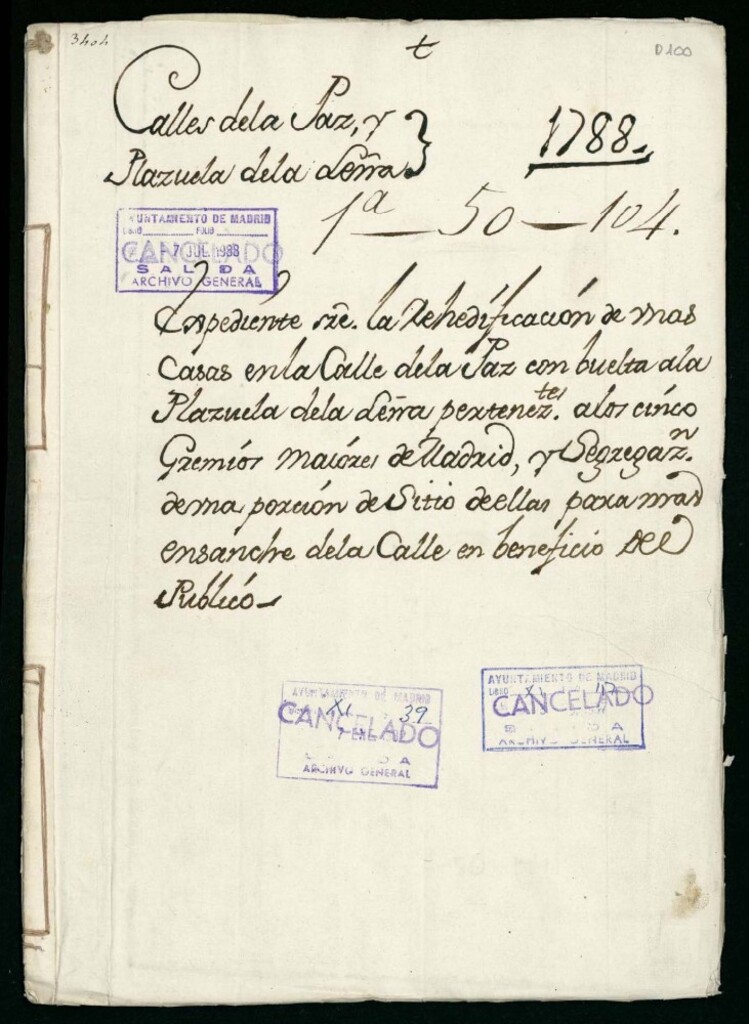 3404
t
D100
Calles dela Paz, y
Plazuela dela Leña
1788.
1ª — 50 — 104.
AYUNTAMIENTO DE MADRID
LIBRO FOLIO
CANCELADO
-7 JUL. 1988
SALIDA
ARCHIVO GENERAL
Expediente sre. la Rehedificación de unas
Casas en la Calle dela Paz con buelta ala
Plazuela dela Leña pertenez.tes alos cinco
Gremios maiores de Madrid, y Segregaz.n
de una porción de Sitio de ellas para mas
ensanche dela Calle en beneficio del
Publico
AYUNTAMIENTO DE MADRID
XI 39
CANCELADO
ARCHIVO GENERAL
AYUNTAMIENTO DE MADRID
LIBRO XI
CANCELADO
ARCHIVO GENERAL